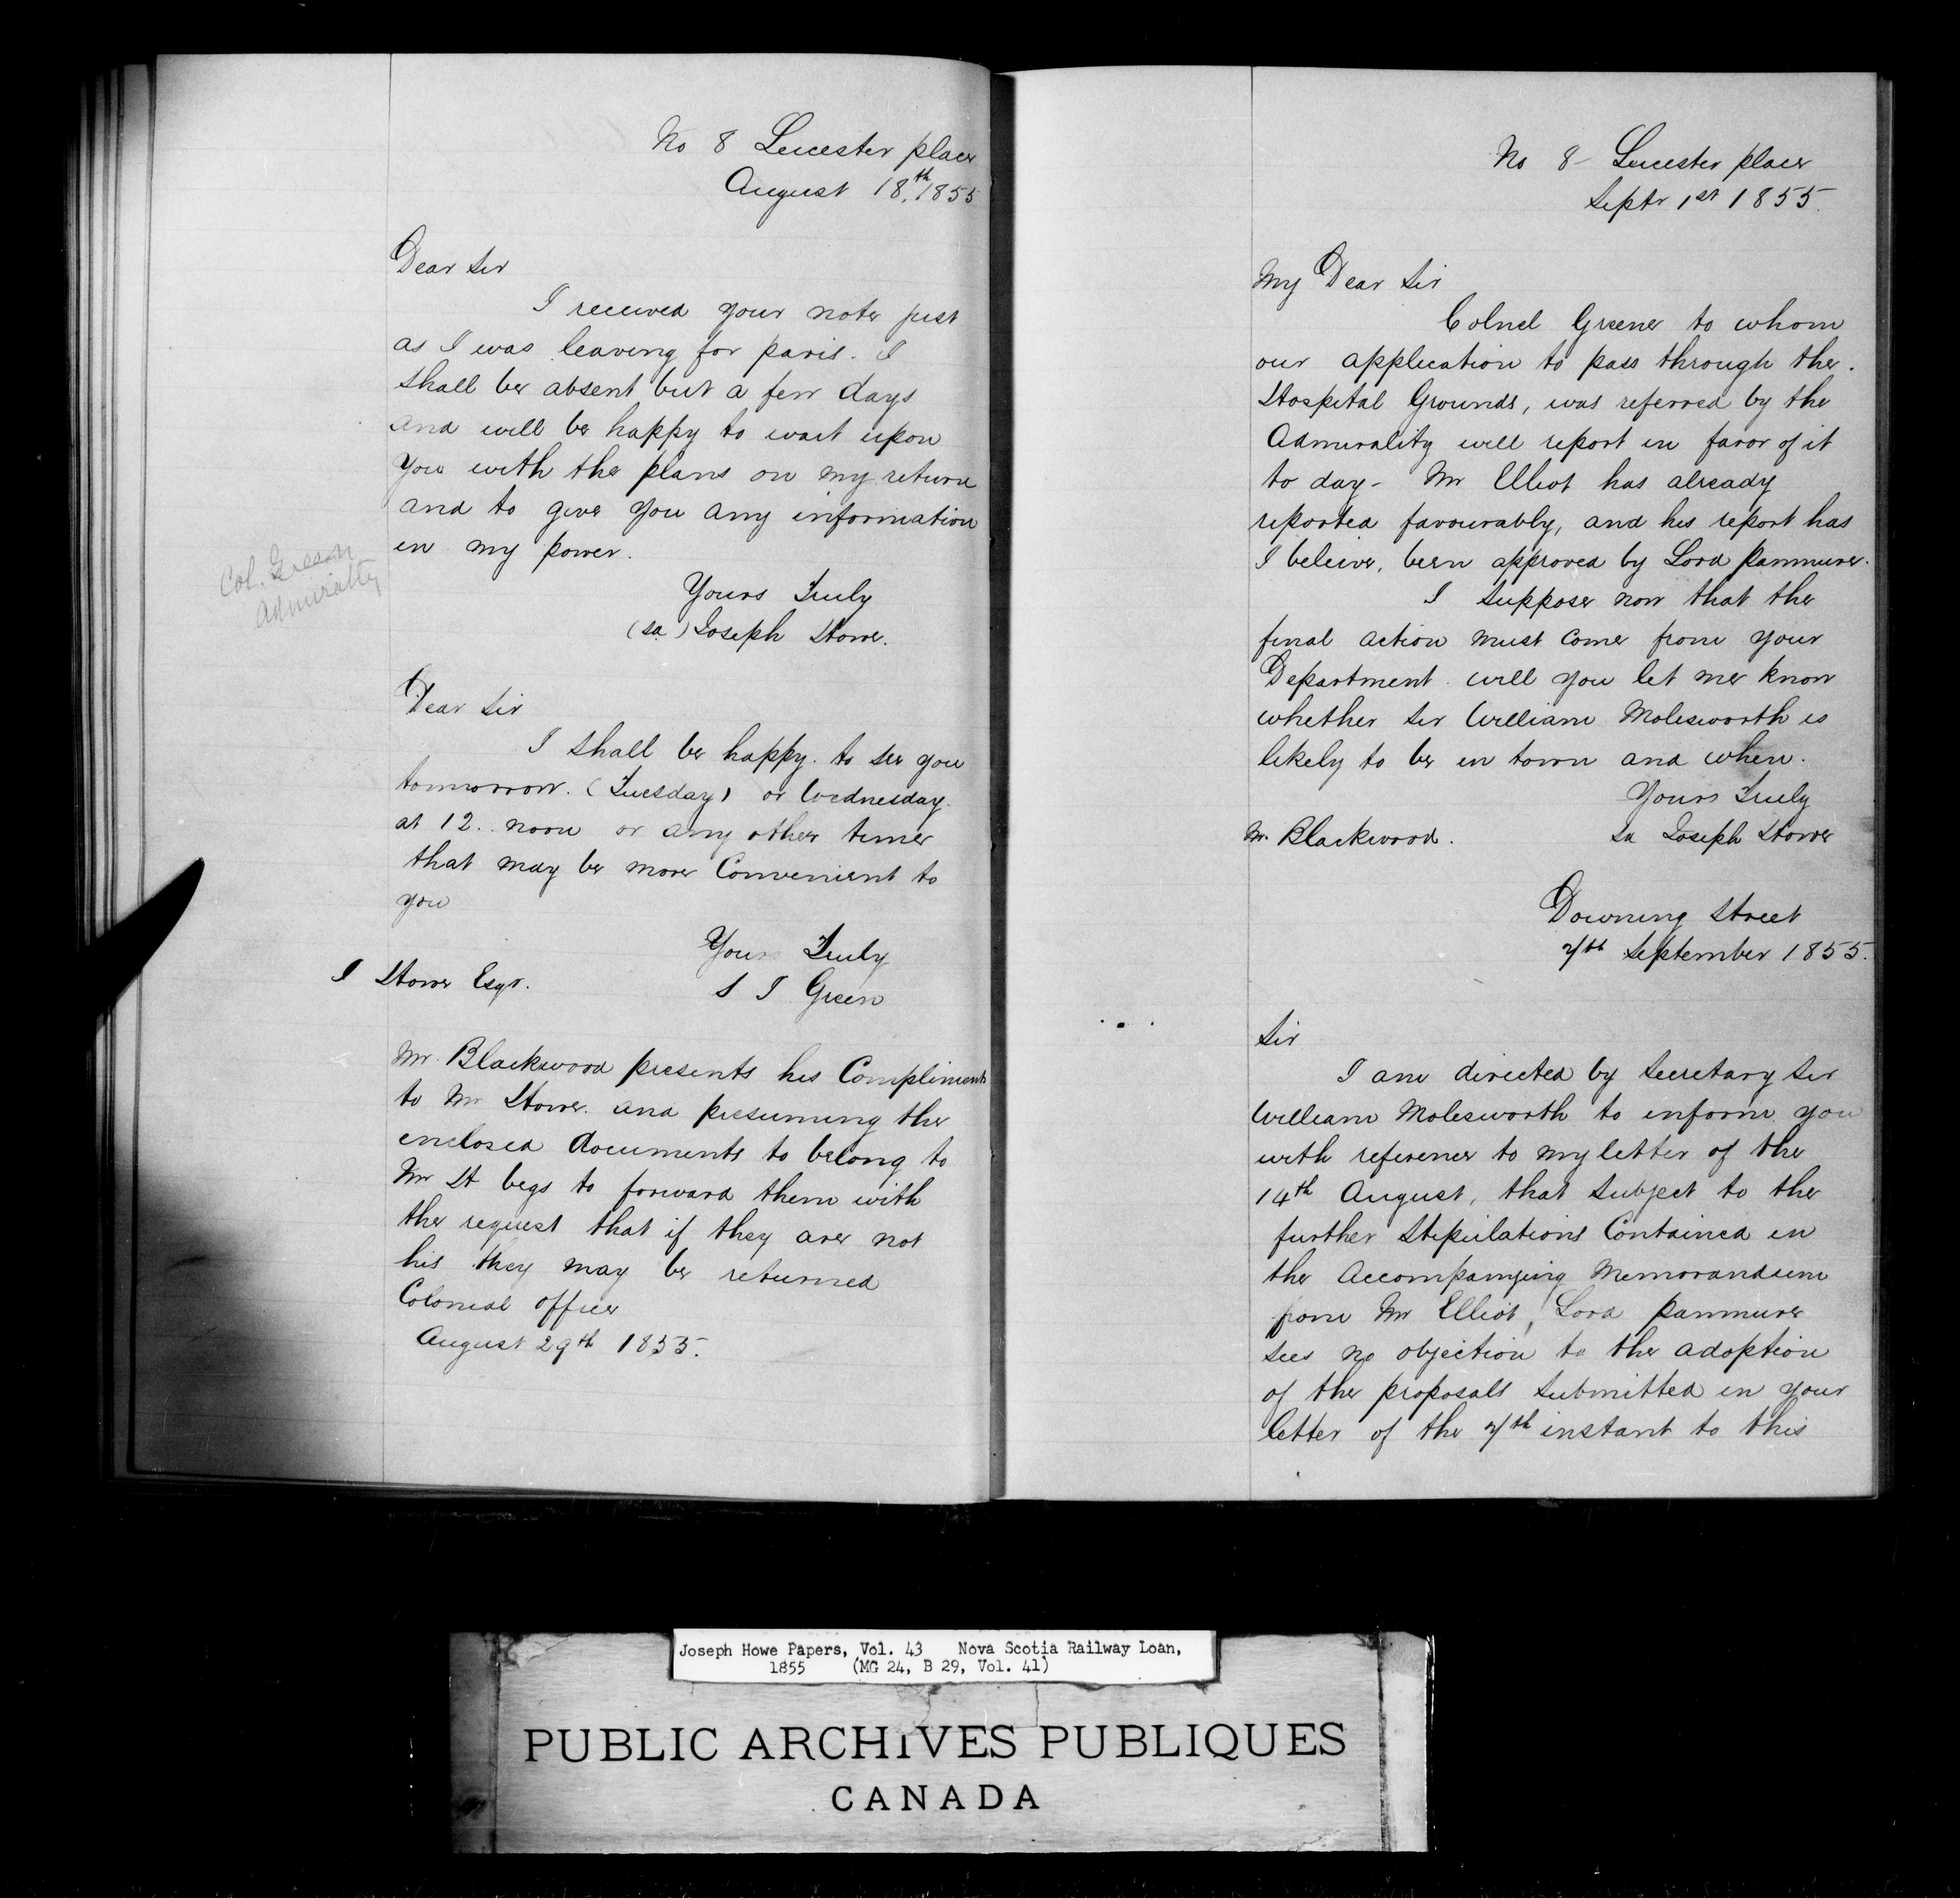 No 8 Leicester place
August 18th, 1855
Dear Sir
I received your note just
as I was leaving for paris. I
shall be absent but a few days
and will be happy to wait upon
you with the plans on my return
and to give you any information
in my power.
Col. Green
Admiralty
Yours Truly
(sd) Joseph Howe.
Dear Sir
I shall be happy to see you
tomorrow. (Tuesday) or Wednesday
at 12.. noon or any other time
that may be more Convenient to
you
Yours Truly
J Howe Esqr.
S J Green
Mr. Blackwood presents his Compliments
to Mr Howe. and presuming the
enclosed documents to belong to
Mr H begs to forward them with
the request that if they are not
his they may be returned
Colonial office
August 29th 1855.
No 8 Leicester place
Septr 1st 1855.
My Dear Sir
Colnel Greene to whom
our application to pass through the.
Hospital Grounds, was referred by the
Admirality will report in favor of it
to day - Mr Elliot has already
reported favourably, and his report has
I beleive, been approved by Lord panmure.
I suppose now that the
final action must come from your
Department will you let me know
whether Sir William Molesworth is
likely to be in town and when.
Yours Truly
Mr. Blackwood.
sd Joseph Howe
Downing Street
7th September 1855.
Sir
I am directed by Secretary Sir
William Molesworth to inform you
with reference to my letter of the
14th August, that subject to the
further Stipulations Contained in
the Accompanying Memorandum
from Mr Elliot, Lord panmure
sees no objection to the adoption
of the proposals submitted in your
letter of the 7th instant to this
Joseph Howe Papers, Vol. 43 Nova Scotia Railway Loan,
1855 (MG 24, B 29, Vol. 41)
PUBLIC ARCHIVES PUBLIQUES
CANADA